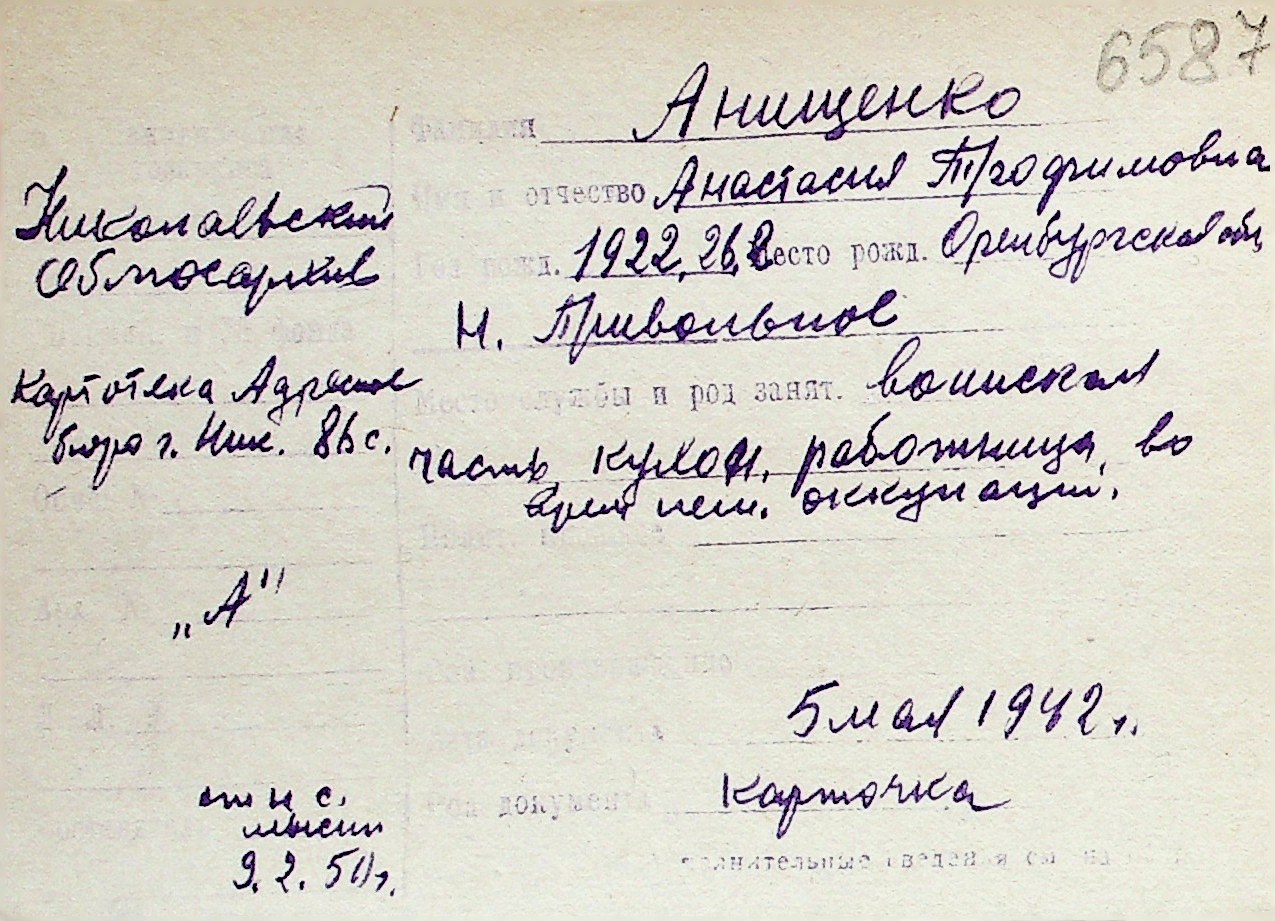 6587
Фамилия Анищенко
Имя и отчество Анастасия Трофимовна
Год рожд. 1922, 26, 2 Место рожд. Оренбургская обл
Н. Привольное
Николаевский
Облгосархив
фонда
Картотека Адресное
бюро г. Ник. 86 с.
Место службы и род занят. воинская
часть, кухон. работница, во
время нем. оккупации.
„А"
5 мая 1942 г.
Род документа Карточка
ст н с.
9. 2. 50 г.
сведения см. на